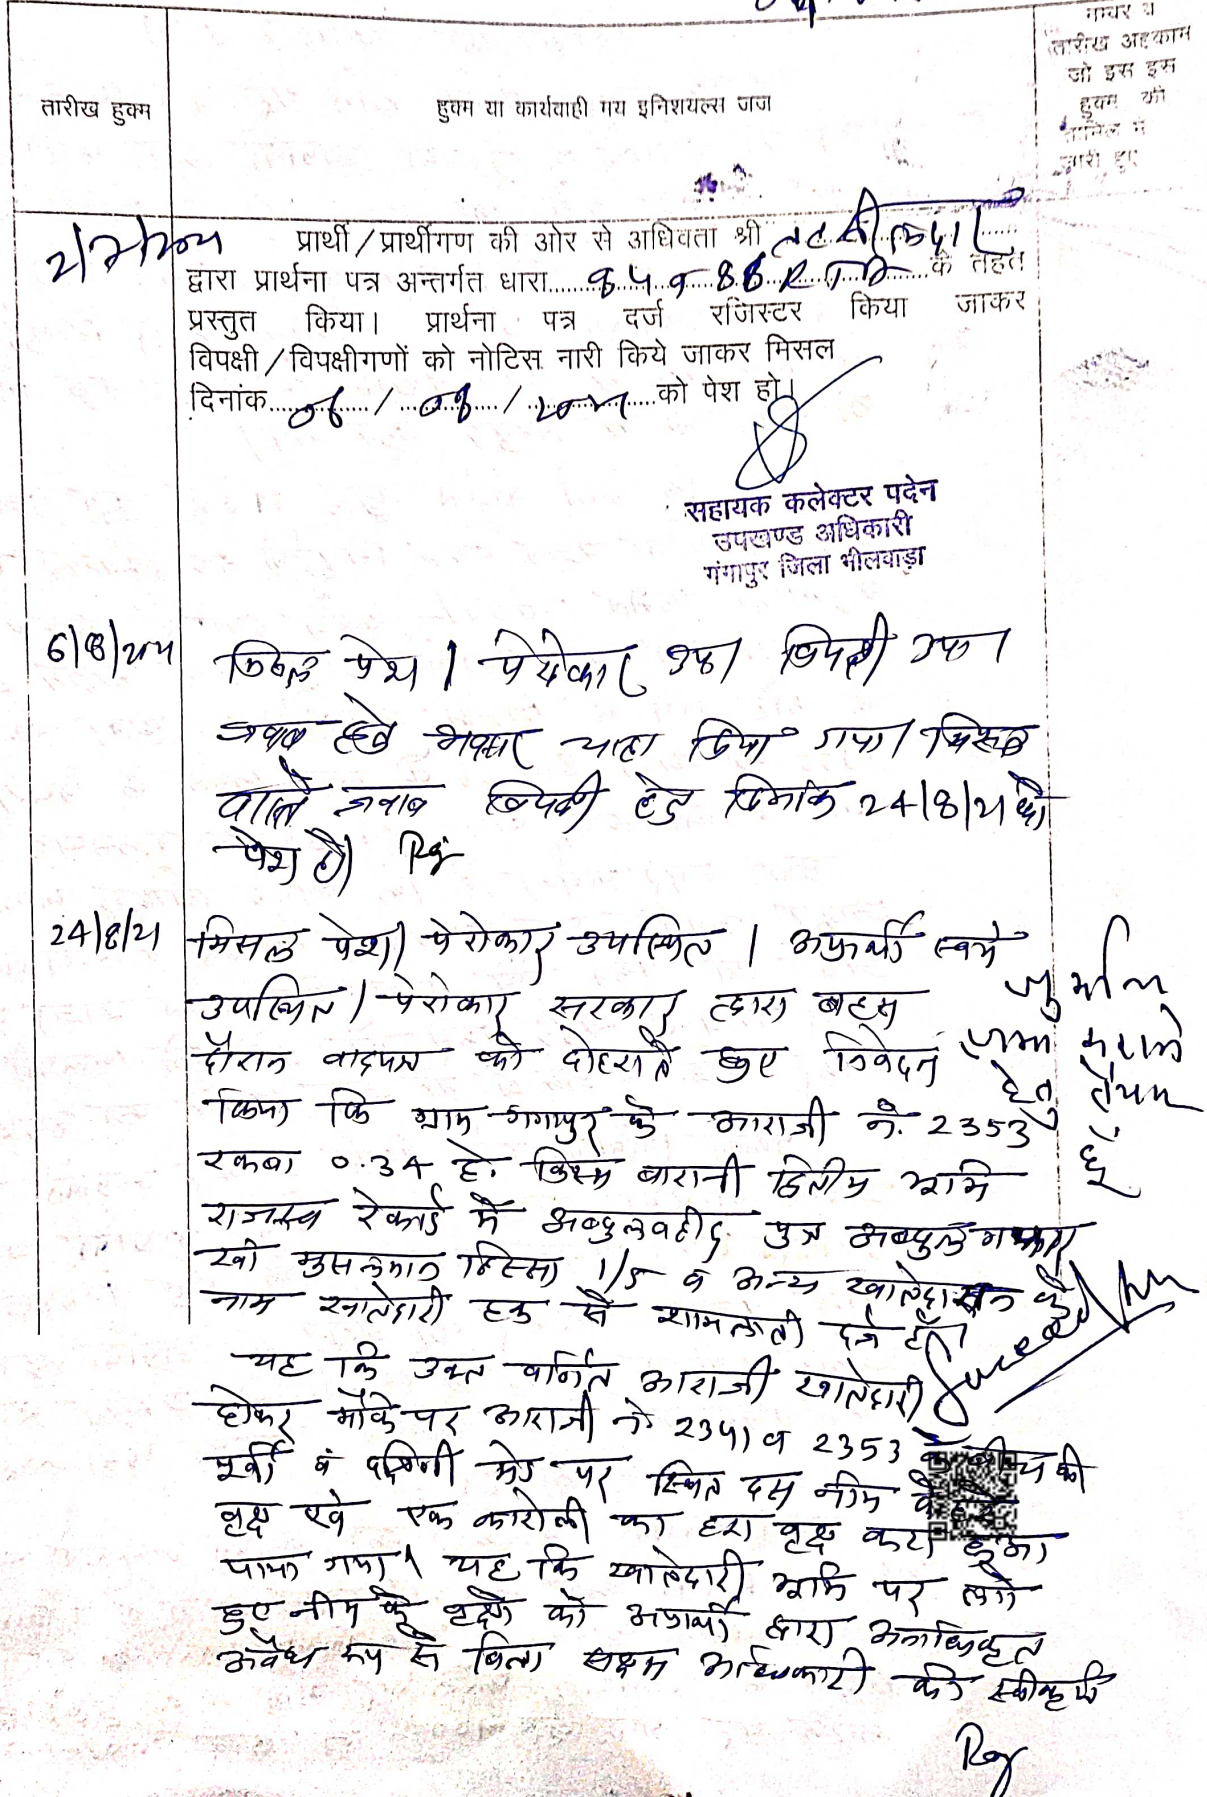 नम्बर व
तारीख अहकाम
जो इस इस
हुक्म की
तामिल में
जारी हुए
तारीख हुक्म
हुक्म या कार्यवाही मय इनिशयल्स जज
प्रार्थी/प्रार्थीगण की ओर से अधिवता श्री तहसीलदार
द्वारा प्रार्थना पत्र अन्तर्गत धारा के तहत
प्रस्तुत किया। प्रार्थना पत्र दर्ज रजिस्टर किया जाकर
विपक्षी/विपक्षीगणों को नोटिस नारी किये जाकर मिसल
दिनांक 06/08/2021 को पेश हो।
सहायक कलेक्टर पदेन
उपखण्ड अधिकारी
गंगापुर जिला भीलवाड़ा
6/8/2021
मिसल पेश। पेरोकार उप। विपक्षी उप।
जवाब हेतु अवसर चाहा दिया गया। मिसल
वास्ते जवाब विपक्षी हेतु दिनांक 24/8/21 को
पेश हो।
24/8/21
मिसल पेश। पेरोकार उपस्थित। अप्रार्थी स्वयं
उपस्थित। पेरोकार सरकार द्वारा बहस
दौरान वादपत्र को दोहराते हुए निवेदन
किया कि ग्राम गंगापुर के आराजी नं. 2353
रकबा 0.34 हे. किस्म बारानी द्वितीय भूमि
राजस्व रेकार्ड में अब्दुलवहीद पुत्र अब्दुल गफ्फार
खां मुसलमान हिस्सा 1/5 व अन्य खातेदारान के
नाम खातेदारी हक से शामलाती दर्ज है।
यह कि उक्त वर्णित आराजी खातेदारी
होकर मौके पर आराजी नं. 2341 व 2353 के बीच की
पूर्वी व दक्षिणी मेड पर स्थित दस नीम के हरे
वृक्ष एवं एक कारोली का हरा वृक्ष कटा हुआ
पाया गया। यह कि खातेदारी भूमि पर लगे
हुए नीम के वृक्षों को अप्रार्थी द्वारा अनाधिकृत
अवैध रूप से बिना सक्षम अधिकारी की स्वीकृति
जुर्माना
जमा कराने
हेतु तैयार
हूँ